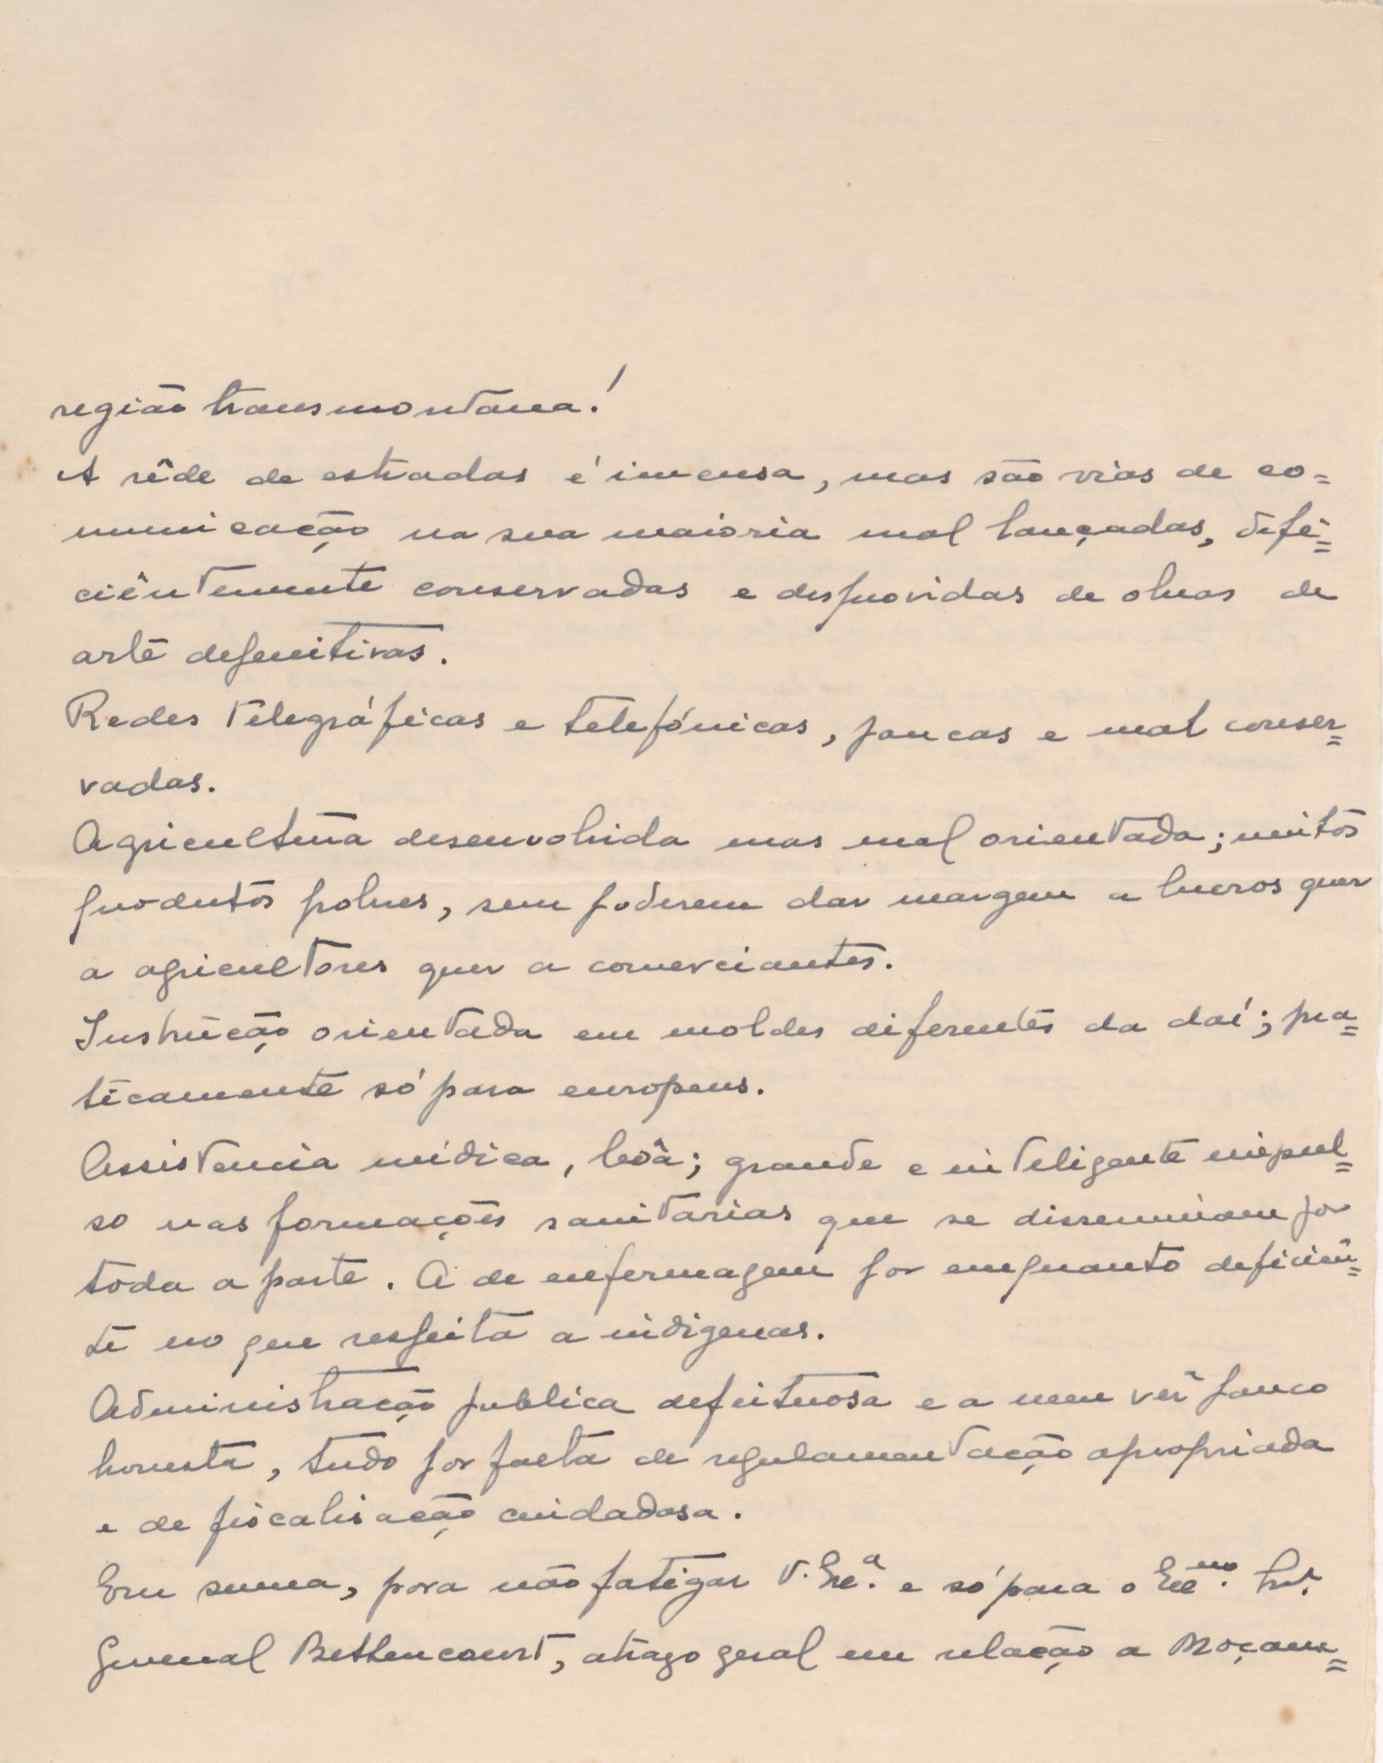 região transmontana!
A rêde de estradas é imensa, mas são vias de co=
municação na sua maioria mal lançadas, defi=
ciêntemente conservadas e desprovidas de obras de
arte defenitivas.
Redes telegráficas e telefónicas, poucas e mal conser=
vadas.
Agricultura desenvolvida mas mal orientada; muitos
produtos pobres, sem poderem dar margem a lucros quer
a agricultores quer a comerciantes.
Instrução orientada em moldes diferentes da daí; pra=
ticamente só para europeus.
Assistencia médica, boâ; grande e inteligente impul=
so nas formações sanitarias que se disseminam por
toda a parte. A de enfermagem por emquanto deficiên=
te no que respeita a indigenas.
Administração publica defeituosa e a meu ver pouco
honesta, tudo por falta de regulamentação apropriada
e de fiscalisação cuidadosa.
Em suma, para não fatigar V. Exc.ª e só para o Exc.mo Snr.
General Bettencourt, atrazo geral em relação a Moçam=